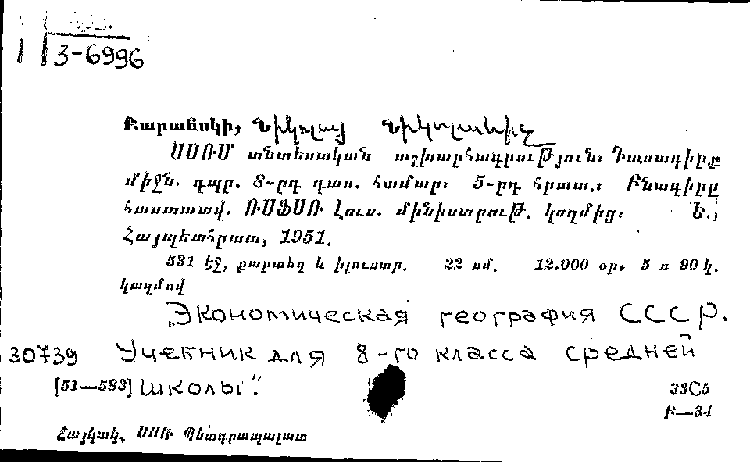 3-6996
Բարանսկի, Նիկոլայ Նիկոլաևիչ
ՍՍՌՄ տնտեսական աշխարհագրություն։ Դասագիրք
միջն. դպր. 8-րդ դաս. համար։ 5-րդ հրատ.։ Բնագիրը
հաստատվ. ՌՍՖՍՌ Լուս. մինիստրութ. կողմից։ Ե.,
Հայպետհրատ, 1951.
531 էջ, քարտեզ և իլուստր. 22 սմ. 12.000 օր. 5 ռ 90 կ.
կազմով
„Экономическая география СССР.
30739 Учебник для 8-го класса средней
[51—583] школы".
33С5
Բ—34
Հայկակ. ՍՍՌ Պետգրապալատ